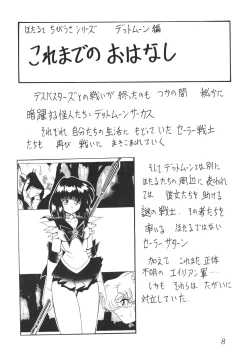 ほたるとちびうさシリーズ デットムーン編
これまでの おはなし
デスバスターズとの戦いが 終ったのも つかの間 秘かに
暗躍する怪人たち・デットムーンサーカス
それぞれ 自分たちの生活に もどっていた セーラー戦士
たちも 再び 戦いに まきこまれていく
そして デットムーンとは別に
ほたるたちの周辺に 現われ
ては 彼女たちを 助ける
謎の戦士。その者たちを
率いる ほたるではない
セーラーサターン
加えて これまた 正体
不明の エイリアン軍…
しかも それらは たがいに
対立していた
8